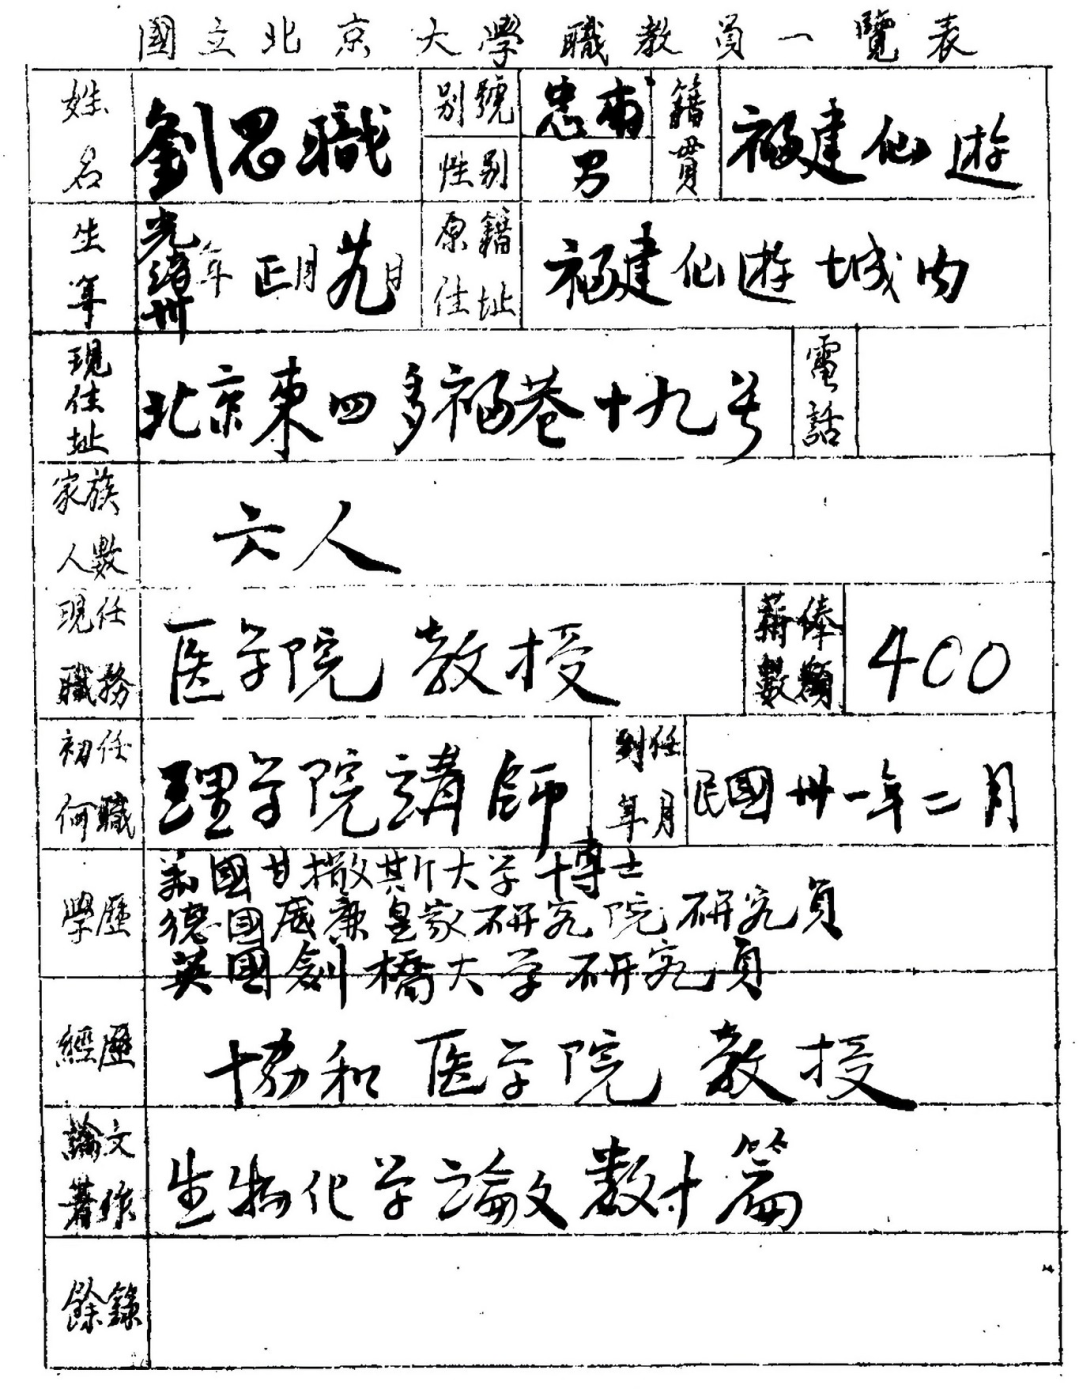 國立北京大學職教員一覽表
姓名 劉思職 別號 忠甫 籍貫 福建仙遊
性別 男
生年 光緒卅年正月元日 原籍住址 福建仙遊城內
現住址 北京東四多福巷十九号 電話
家族人數 六人
現任職務 医学院 教授 薪俸數額 400
初任何職 理学院講師 到任年月 民國卅一年二月
學歷 美國甘撒斯大学博士
德國威廉皇家研究院研究員
英國劍橋大学研究員
經歷 協和医学院 教授
論文著作 生物化学論文数十篇
餘錄